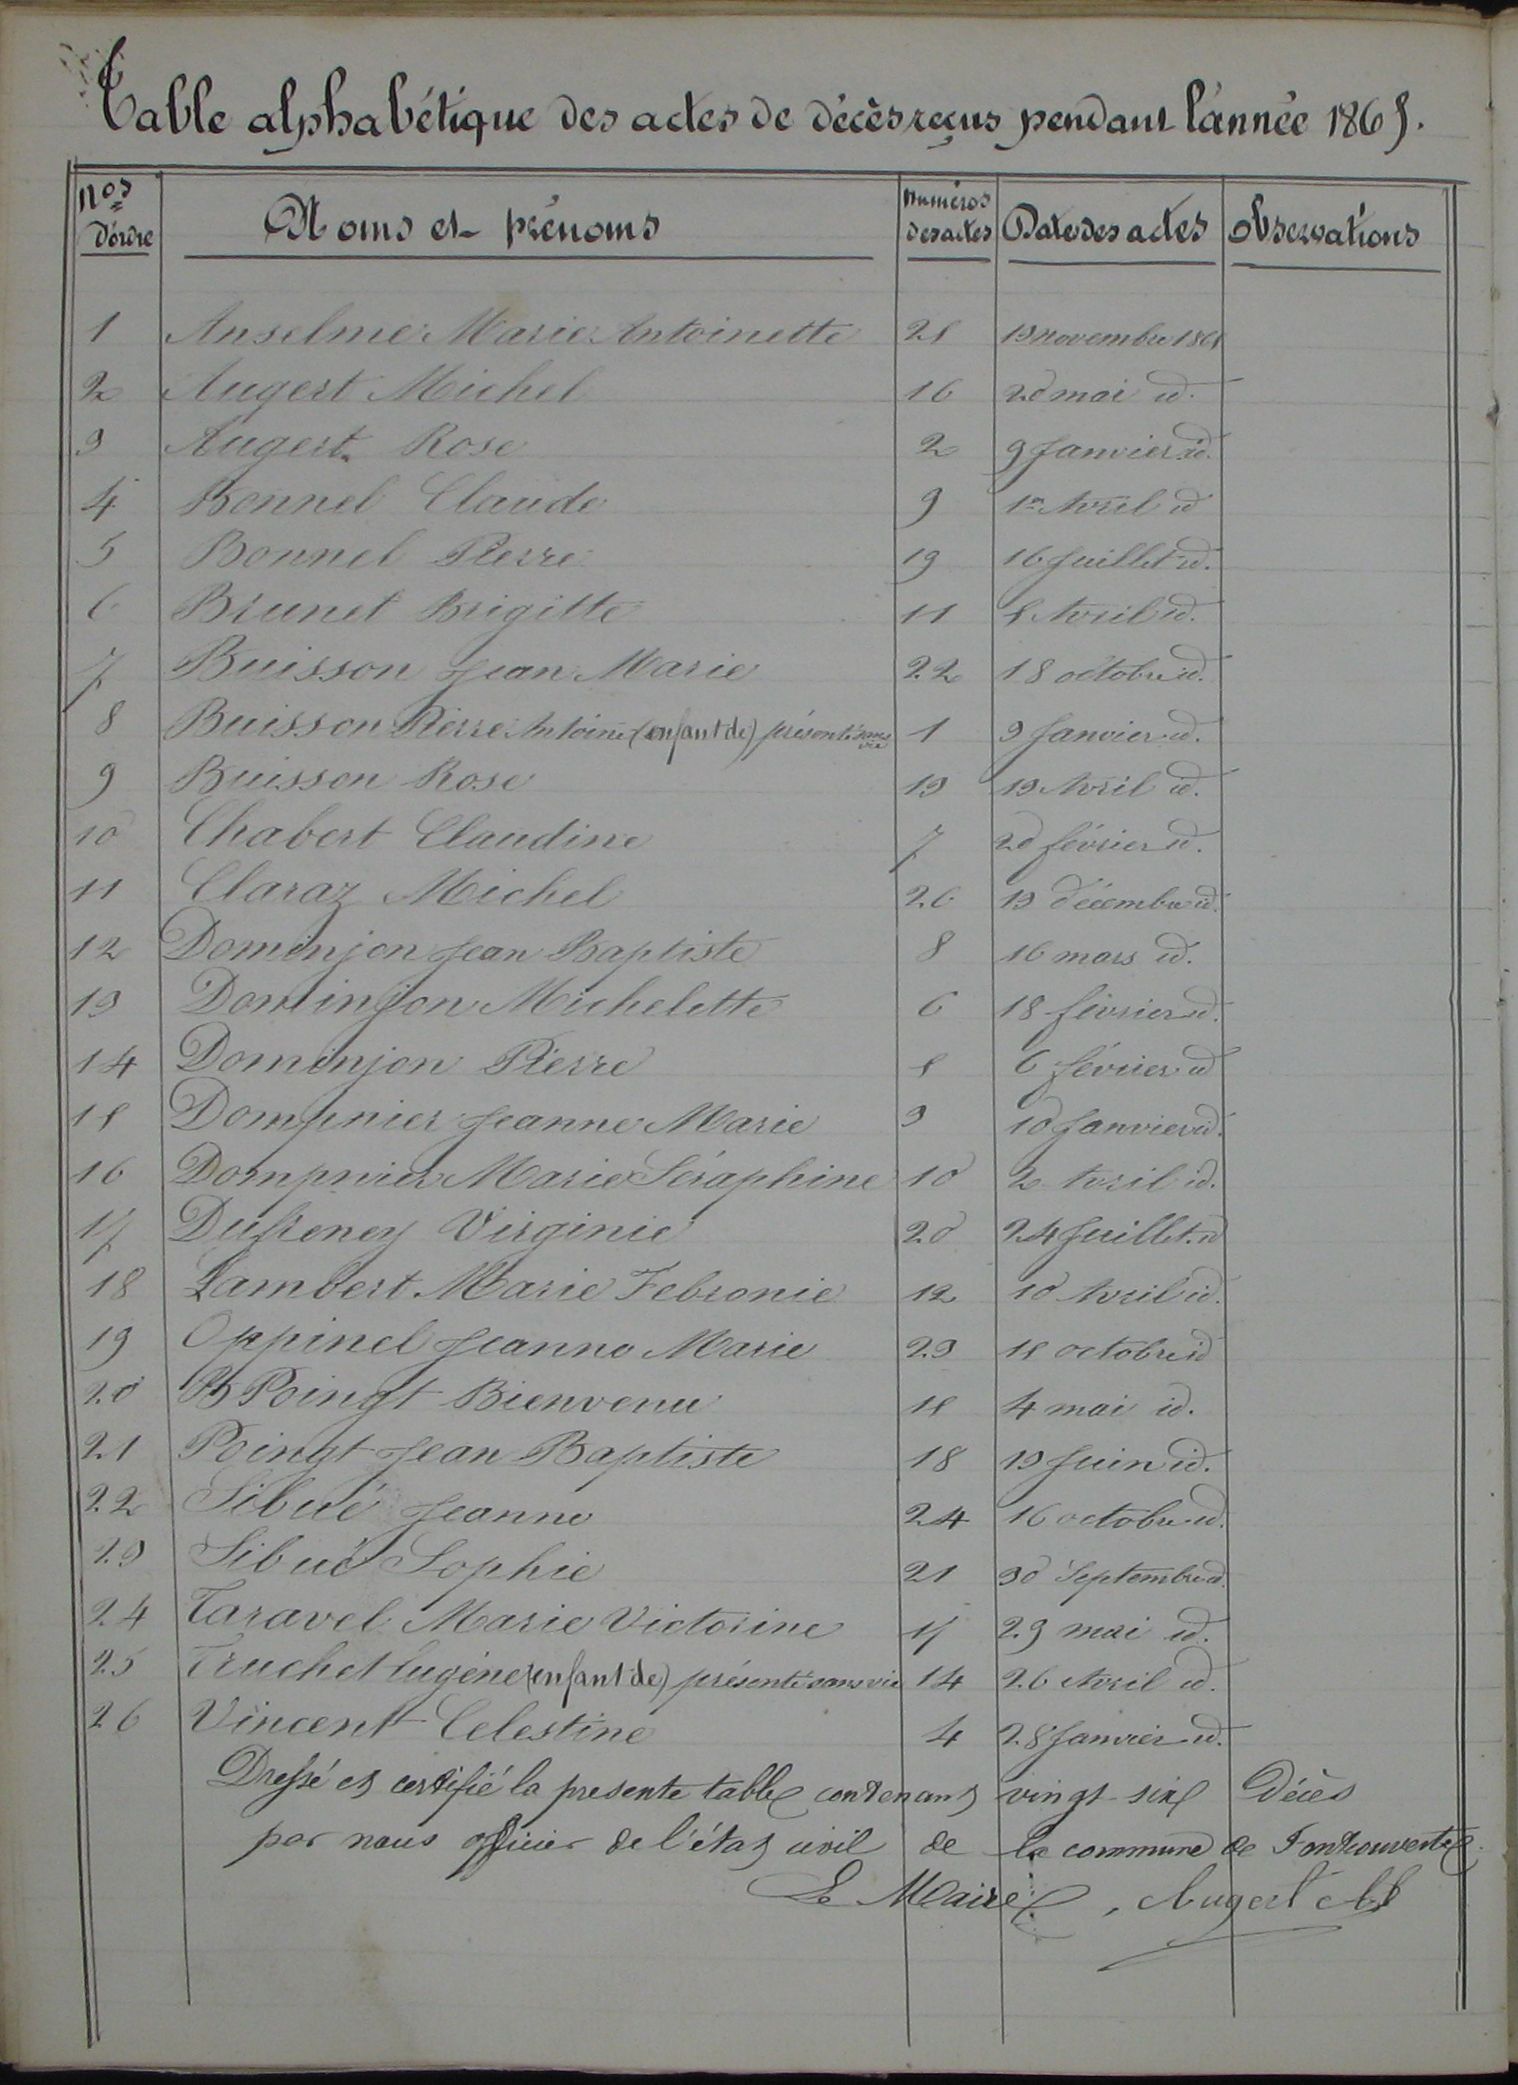 Table alphabétique des actes de décès reçus pendant l'année 1865.
Nos d'ordre Noms et prénoms numéros des actes Date des actes observations
1 Anselme Marie Antoinette 25 13 novembre 1865
2 Augert Michel 16 20 mai id.
3 Augert Rose 2 9 Janvier id.
4 Bonnel Claude 9 1er Avril id
5 Bonnel Pierre 19 16 Juillet id.
6 Brunet Brigitte 11 5 Avril id.
7 Buisson Jean Marie 22 18 octobre id.
8 Buisson Pierre Antoine (enfant de) présenté sans vie 1 3 Janvier id.
9 Buisson Rose 13 13 Avril id.
10 Chabert Claudine 7 20 février id.
11 Claraz Michel 26 13 décembre id.
12 Dominjon Jean Baptiste 8 16 mars id.
13 Dominjon Michelette 6 18 février id.
14 Dominjon Pierre 5 6 février id
15 Dompnier Jeanne Marie 3 10 Janvier id.
16 Dompnier Marie Séraphine 10 2 Avril id.
17 Dufreney Virginie 20 24 Juillet id
18 Lambert Marie Febronie 12 10 Avril id.
19 Oppinel Jeanne Marie 23 15 octobre id
20 Poingt Bienvenu 15 4 mai id.
21 Poingt Jean Baptiste 18 13 Juin id.
22 Sibué Jeanne 24 16 octobre id.
23 Sibué Sophie 21 30 Septembre id.
24 Taravel Marie Victorine 17 23 mai id.
25 Truchet Eugène (enfant de) présenté sans vie 14 26 Avril id.
26 Vincent Celestine 4 28 Janvier id.
Dressé et certifié la presente table contenant vingt-six Décès
par nous officier de l'état civil de la commune de Fontcouverte.
Le Maire, Augert